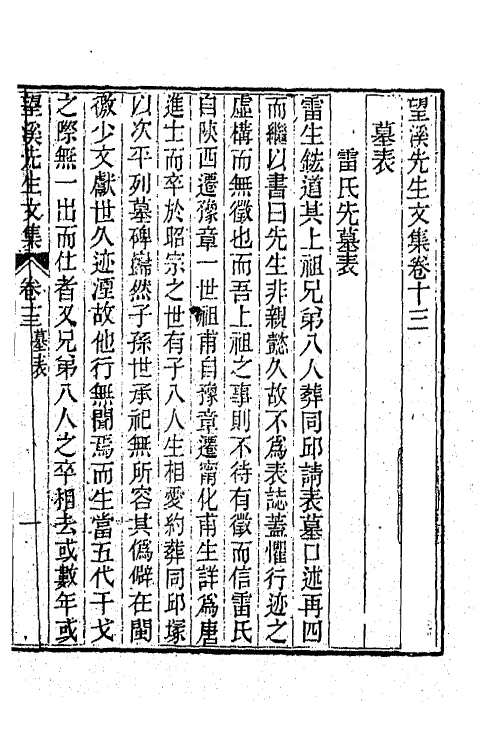 望溪先生文集卷十三
墓表
雷氏先墓表
雷生鋐道其上祖兄弟八人葬同邱請表墓口述再四
而繼以書曰先生非親懿久故不爲表誌蓋懼行迹之
虛構而無徵也而吾上祖之事則不待有徵而信雷氏
自陝西遷豫章一世祖甫自豫章遷甯化甫生詳爲唐
進士而卒於昭宗之世有子八人生相愛約葬同邱塚
以次平列墓碑巋然子孫世承祀無所容其僞僻在閩
徼少文獻世久迹湮故他行無聞焉而生當五代干戈
之際無一出而仕者又兄弟八人之卒相去或數年或
望溪先生文集
卷十三
墓表
一